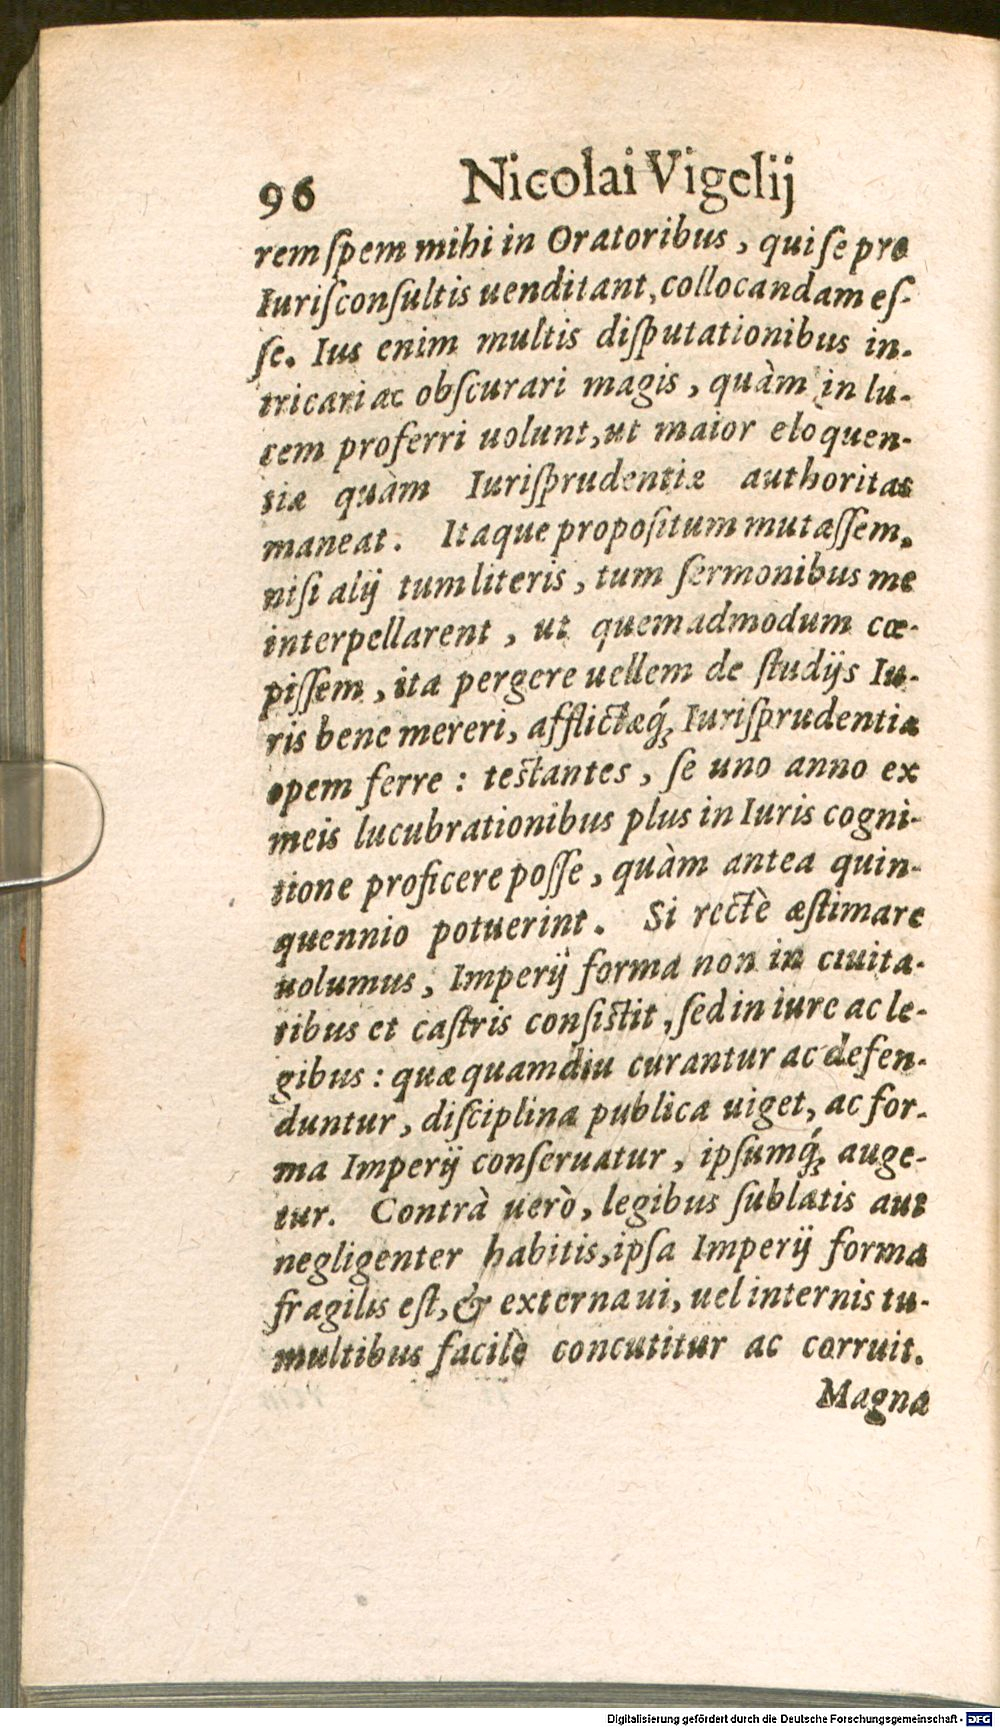 96 Nicolai Vigelij
rem ſpem mihi in Oratoribus, qui ſe pro
Iuriſconſultis uenditant, collocandam eſ-
ſe. Ius enim multis diſputationibus in-
tricari ac obſcurari magis, quàm in lu-
cem proferri uolunt, ut maior eloquen-
tiæ quàm Iuriſprudentiæ authoritas
maneat. Itaque propoſitum mutaſſem,
niſi alij tum literis, tum ſermonibus me
interpellarent, ut quemadmodum cœ-
piſſem, ita pergere uellem de ſtudijs Iu-
ris bene mereri, afflictæq́; Iuriſprudentiæ
opem ferre: testantes, ſe uno anno ex
meis lucubrationibus plus in Iuris cogni-
tione proficere poſſe, quàm antea quin-
quennio potuerint. Si rectè æſtimare
uolumus, Imperij forma non in ciuita-
tibus et caſtris conſistit, ſed in iure ac le-
gibus: quæ quamdiu curantur ac defen-
duntur, diſciplina publica uiget, ac for-
ma Imperij conſeruatur, ipſumq́; auge-
tur. Contrà uerò, legibus ſublatis aut
negligenter habitis, ipſa Imperij forma
fragilis eſt, & externa ui, uel internis tu-
multibus facilè concutitur ac corruit.
Magna
Digitalisierung gefördert durch die Deutsche Forschungsgemeinschaft - DFG